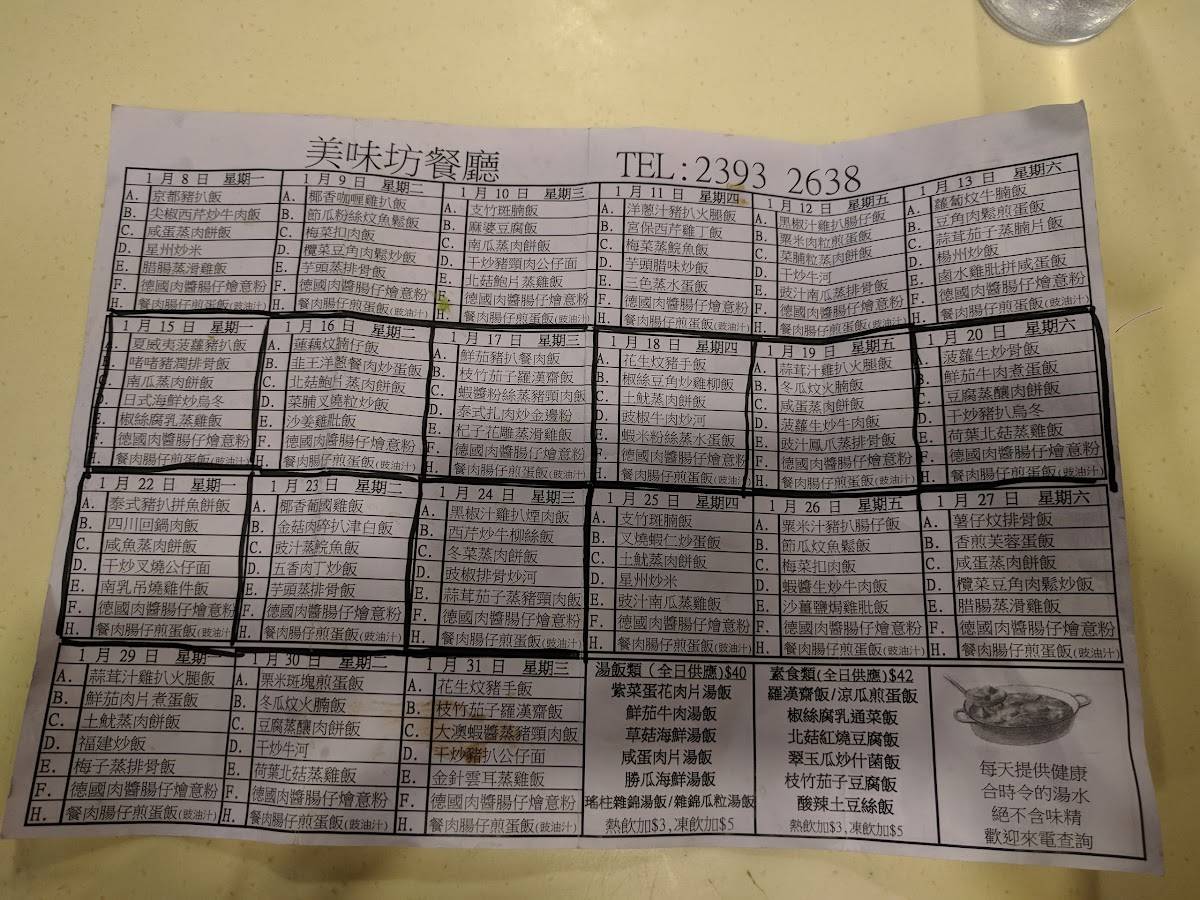 美味坊餐廳 TEL:2393 2638
1月8日 星期一
A. 京都豬扒飯
B. 尖椒西芹炒牛肉飯
C. 咸蛋蒸肉餅飯
D. 星州炒米
E. 腊腸蒸滑雞飯
F. 德國肉醬腸仔燴意粉
H. 餐肉腸仔煎蛋飯(豉油汁)
1月9日 星期二
A. 椰香咖喱雞扒飯
B. 節瓜粉絲炆魚鬆飯
C. 梅菜扣肉飯
D. 欖菜豆角肉鬆炒飯
E. 芋頭蒸排骨飯
F. 德國肉醬腸仔燴意粉
H. 餐肉腸仔煎蛋飯(豉油汁)
1月10日 星期三
A. 支竹斑腩飯
B. 麻婆豆腐飯
C. 南瓜蒸肉餅飯
D. 干炒豬頸肉公仔面
E. 北菇鮑片蒸雞飯
F. 德國肉醬腸仔燴意粉
H. 餐肉腸仔煎蛋飯(豉油汁)
1月11日 星期四
A. 洋蔥汁豬扒火腿飯
B. 宮保西芹雞丁飯
C. 梅菜蒸鯇魚飯
D. 芋頭腊味炒飯
E. 三色蒸水蛋飯
F. 德國肉醬腸仔燴意粉
H. 餐肉腸仔煎蛋飯(豉油汁)
1月12日 星期五
A. 黑椒汁雞扒腸仔飯
B. 粟米肉粒煎蛋飯
C. 菜脯粒蒸肉餅飯
D. 干炒牛河
E. 豉汁南瓜蒸排骨飯
F. 德國肉醬腸仔燴意粉
H. 餐肉腸仔煎蛋飯(豉油汁)
1月13日 星期六
A. 蘿蔔炆牛腩飯
B. 豆角肉鬆煎蛋飯
C. 蒜茸茄子蒸腩片飯
D. 楊州炒飯
E. 鹵水雞肶拼咸蛋飯
F. 德國肉醬腸仔燴意粉
H. 餐肉腸仔煎蛋飯(豉油汁)
1月15日 星期一
A. 夏威夷菠蘿豬扒飯
B. 啫啫豬潤排骨飯
C. 南瓜蒸肉餅飯
D. 日式海鮮炒烏冬
E. 椒絲腐乳蒸雞飯
F. 德國肉醬腸仔燴意粉
H. 餐肉腸仔煎蛋飯(豉油汁)
1月16日 星期二
A. 蓮藕炆腩仔飯
B. 韭王洋蔥餐肉炒蛋飯
C. 北菇鮑片蒸肉餅飯
D. 菜脯叉燒粒炒飯
E. 沙姜雞肶飯
F. 德國肉醬腸仔燴意粉
H. 餐肉腸仔煎蛋飯(豉油汁)
1月17日 星期三
A. 鮮茄豬扒餐肉飯
B. 枝竹茄子羅漢齋飯
C. 蝦醬粉絲蒸豬頸肉飯
D. 泰式扎肉炒金邊粉
E. 杞子花雕蒸滑雞飯
F. 德國肉醬腸仔燴意粉
H. 餐肉腸仔煎蛋飯(豉油汁)
1月18日 星期四
A. 花生炆豬手飯
B. 椒絲豆角炒雞柳飯
C. 土魷蒸肉餅飯
D. 豉椒牛肉炒河
E. 蝦米粉絲蒸水蛋飯
F. 德國肉醬腸仔燴意粉
H. 餐肉腸仔煎蛋飯(豉油汁)
1月19日 星期五
A. 蒜茸汁雞扒火腿飯
B. 冬瓜炆火腩飯
C. 咸蛋蒸肉餅飯
D. 菠蘿生炒牛肉飯
E. 豉汁鳳爪蒸排骨飯
F. 德國肉醬腸仔燴意粉
H. 餐肉腸仔煎蛋飯(豉油汁)
1月20日 星期六
A. 菠蘿生炒骨飯
B. 鮮茄牛肉煮蛋飯
C. 豆腐蒸釀肉餅飯
D. 干炒豬扒烏冬
E. 荷葉北菇蒸雞飯
F. 德國肉醬腸仔燴意粉
H. 餐肉腸仔煎蛋飯(豉油汁)
1月22日 星期一
A. 泰式豬扒拼魚餅飯
B. 四川回鍋肉飯
C. 咸魚蒸肉餅飯
D. 干炒叉燒公仔面
E. 南乳吊燒雞件飯
F. 德國肉醬腸仔燴意粉
H. 餐肉腸仔煎蛋飯(豉油汁)
1月23日 星期二
A. 椰香葡國雞飯
B. 金菇肉碎扒津白飯
C. 豉汁蒸鯇魚飯
D. 五香肉丁炒飯
E. 芋頭蒸排骨飯
F. 德國肉醬腸仔燴意粉
H. 餐肉腸仔煎蛋飯(豉油汁)
1月24日 星期三
A. 黑椒汁雞扒煙肉飯
B. 西芹炒牛柳絲飯
C. 冬菜蒸肉餅飯
D. 豉椒排骨炒河
E. 蒜茸茄子蒸豬頸肉飯
F. 德國肉醬腸仔燴意粉
H. 餐肉腸仔煎蛋飯(豉油汁)
1月25日 星期四
A. 支竹斑腩飯
B. 叉燒蝦仁炒蛋飯
C. 土魷蒸肉餅飯
D. 星州炒米
E. 豉汁南瓜蒸雞飯
F. 德國肉醬腸仔燴意粉
H. 餐肉腸仔煎蛋飯(豉油汁)
1月26日 星期五
A. 粟米汁豬扒腸仔飯
B. 節瓜炆魚鬆飯
C. 梅菜扣肉飯
D. 蝦醬生炒牛肉飯
E. 沙薑鹽焗雞肶飯
F. 德國肉醬腸仔燴意粉
H. 餐肉腸仔煎蛋飯(豉油汁)
1月27日 星期六
A. 薯仔炆排骨飯
B. 香煎芙蓉蛋飯
C. 咸蛋蒸肉餅飯
D. 欖菜豆角肉鬆炒飯
E. 腊腸蒸滑雞飯
F. 德國肉醬腸仔燴意粉
H. 餐肉腸仔煎蛋飯(豉油汁)
1月29日 星期一
A. 蒜茸汁雞扒火腿飯
B. 鮮茄肉片煮蛋飯
C. 土魷蒸肉餅飯
D. 福建炒飯
E. 梅子蒸排骨飯
F. 德國肉醬腸仔燴意粉
H. 餐肉腸仔煎蛋飯(豉油汁)
1月30日 星期二
A. 粟米斑塊煎蛋飯
B. 冬瓜炆火腩飯
C. 豆腐蒸釀肉餅飯
D. 干炒牛河
E. 荷葉北菇蒸雞飯
F. 德國肉醬腸仔燴意粉
H. 餐肉腸仔煎蛋飯(豉油汁)
1月31日 星期三
A. 花生炆豬手飯
B. 枝竹茄子羅漢齋飯
C. 大澳蝦醬蒸豬頸肉飯
D. 干炒豬扒公仔面
E. 金針雲耳蒸雞飯
F. 德國肉醬腸仔燴意粉
H. 餐肉腸仔煎蛋飯(豉油汁)
湯飯類(全日供應)$40
紫菜蛋花肉片湯飯
鮮茄牛肉湯飯
草菇海鮮湯飯
咸蛋肉片湯飯
勝瓜海鮮湯飯
瑤柱雜錦湯飯/雜錦瓜粒湯飯
熱飲加$3,凍飲加$5
素食類(全日供應)$42
羅漢齋飯/涼瓜煎蛋飯
椒絲腐乳通菜飯
北菇紅燒豆腐飯
翠玉瓜炒什菌飯
枝竹茄子豆腐飯
酸辣土豆絲飯
熱飲加$3,凍飲加$5
每天提供健康
合時令的湯水
絕不含味精
歡迎來電查詢